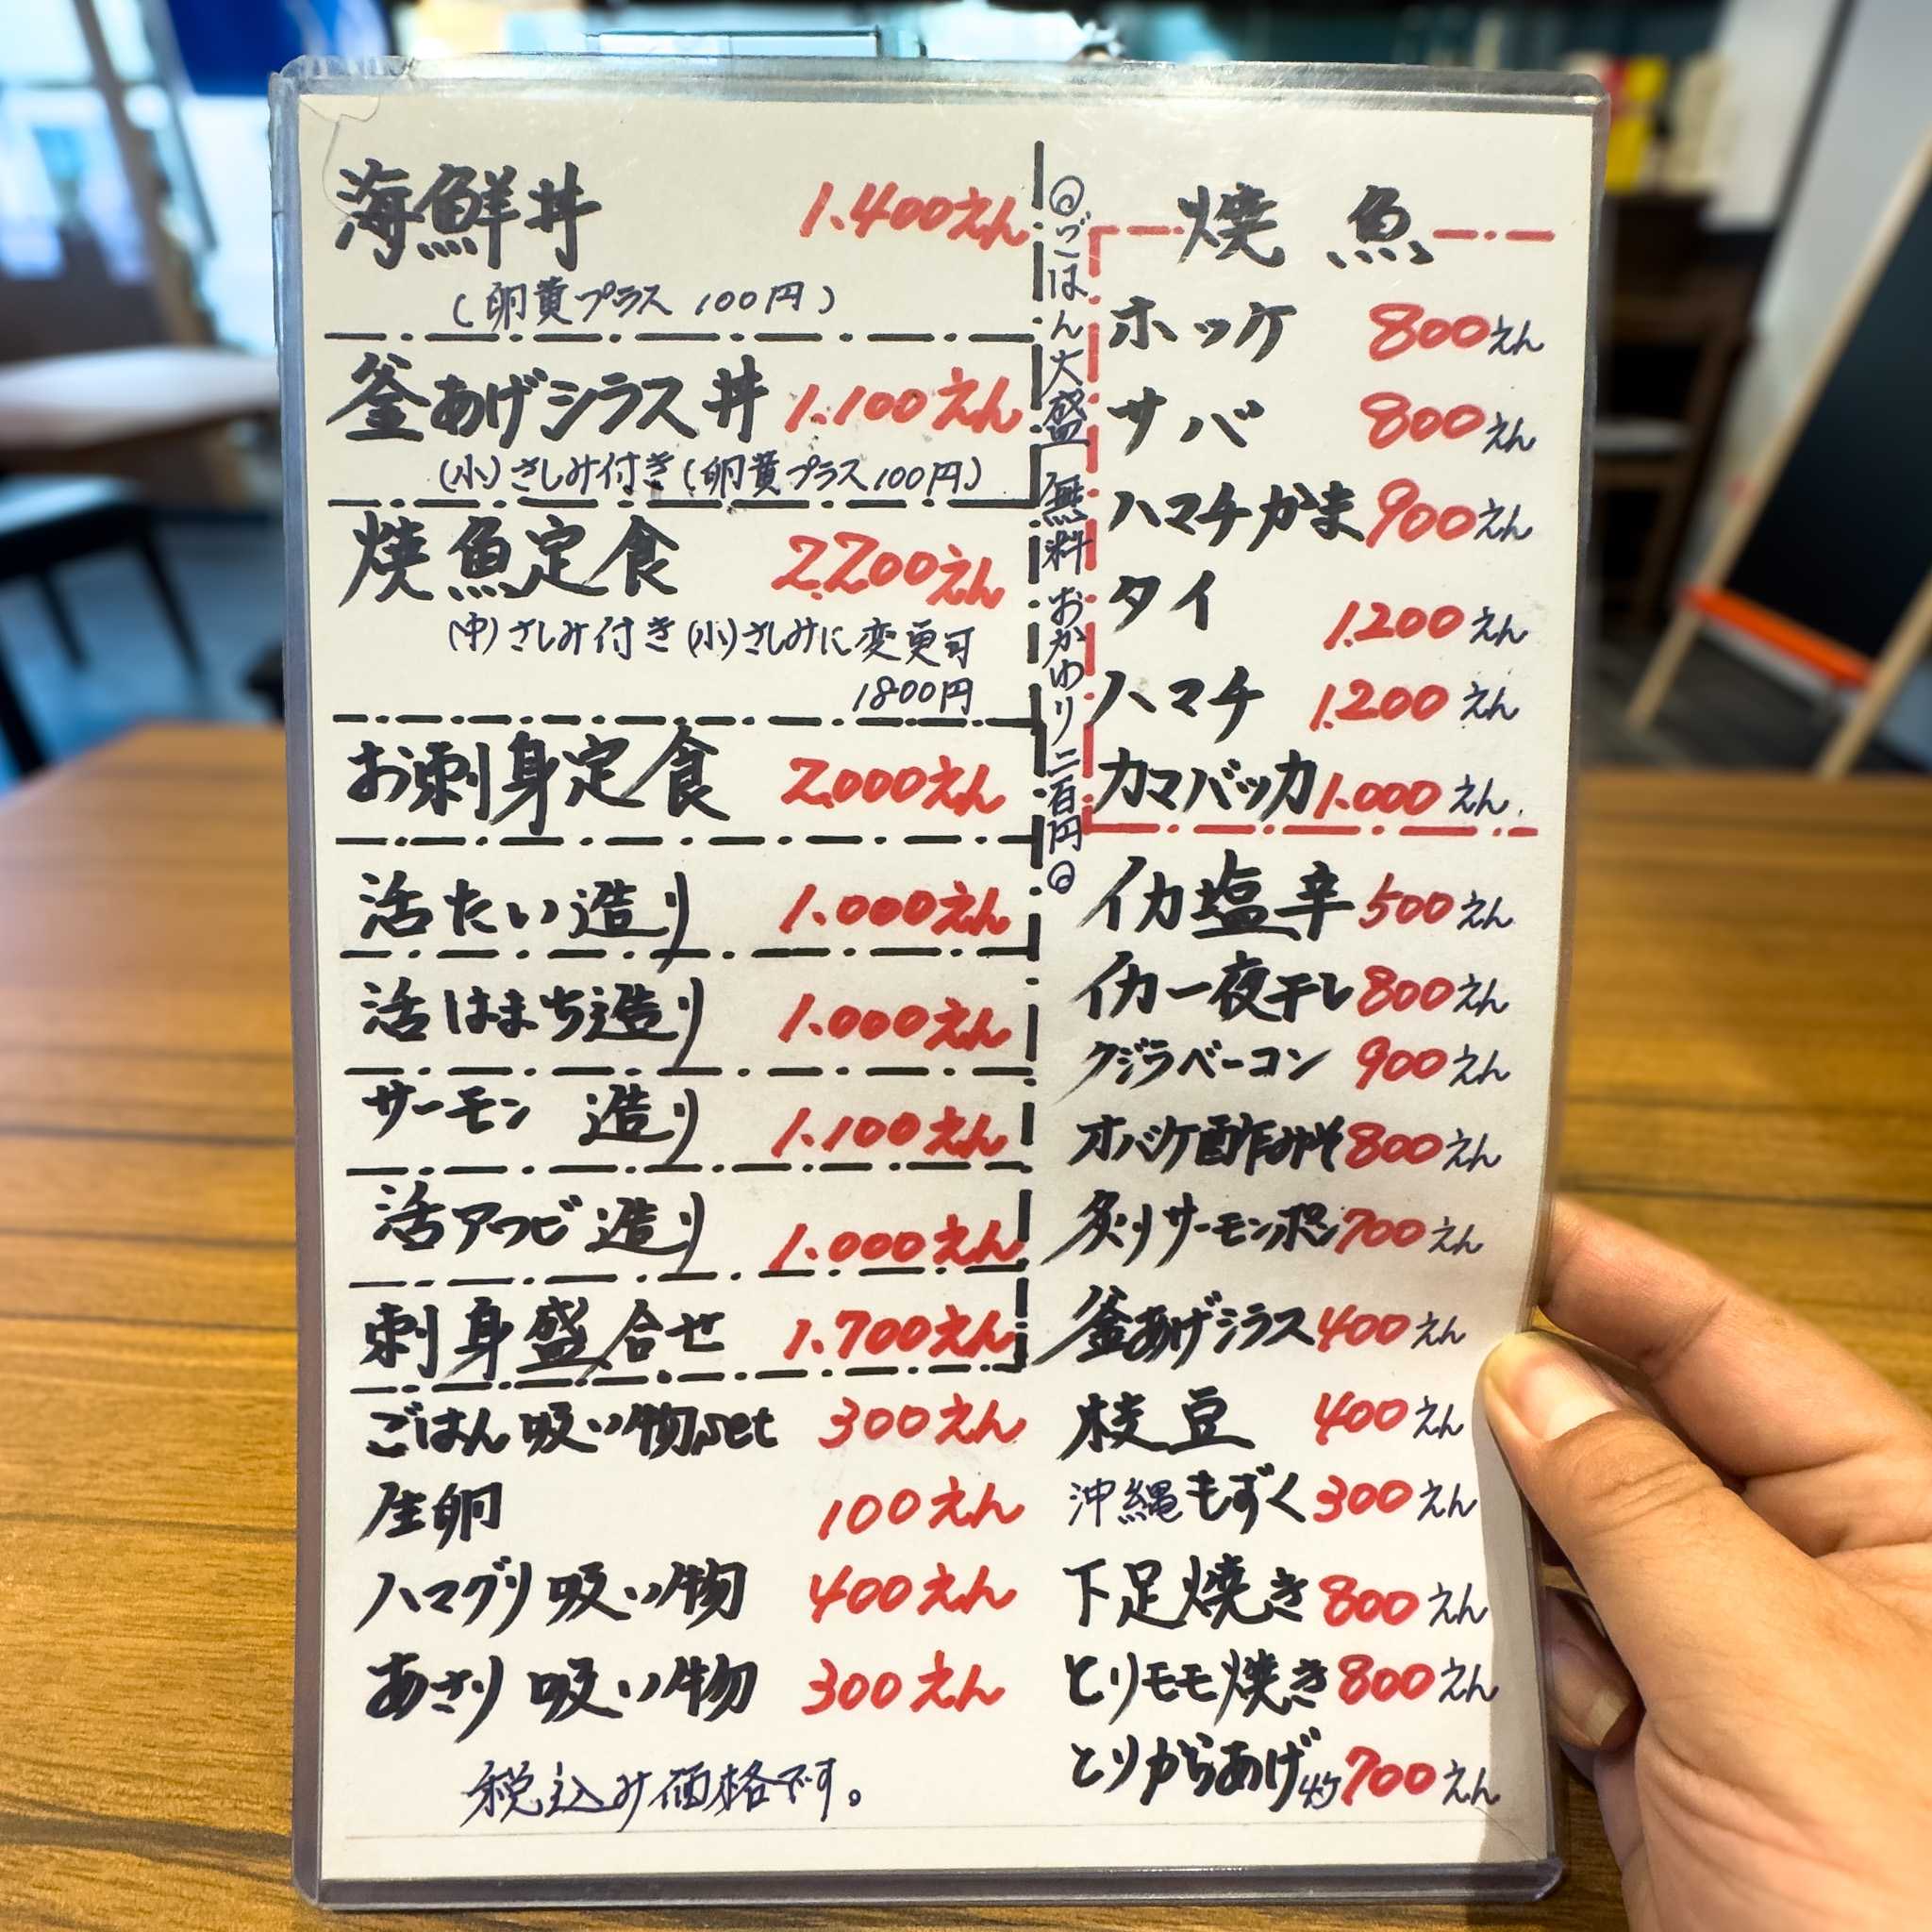 海鮮丼 1.400えん
(卵黄プラス 100円)
釜あげシラス丼 1.100えん
(小)さしみ付き(卵黄プラス100円)
焼魚定食 2.200えん
(中)さしみ付き(小)さしみに変更可
1800円
お刺身定食 2.000えん
活たい造り 1.000えん
活はまち造り 1.000えん
サーモン 造り 1.100えん
活アワビ造り 1.000えん
刺身盛合せ 1.700えん
ごはん吸い物set 300えん
生卵 100えん
ハマグリ吸い物 400えん
あさり吸い物 300えん
税込み価格です。
◎ごはん大盛無料 おかゆり二百円◎
焼魚
ホッケ 800えん
サバ 800えん
ハマチかま 900えん
タイ 1.200えん
ハマチ 1.200えん
カマバッカ 1.000えん
イカ塩辛 500えん
イカ一夜干し 800えん
クジラベーコン 900えん
オバケ酢みそ 800えん
炙りサーモンポン 700えん
釜あげシラス 400えん
枝豆 400えん
沖縄もずく 300えん
下足焼き 800えん
とりモモ焼き 800えん
とりからあげ 700えん